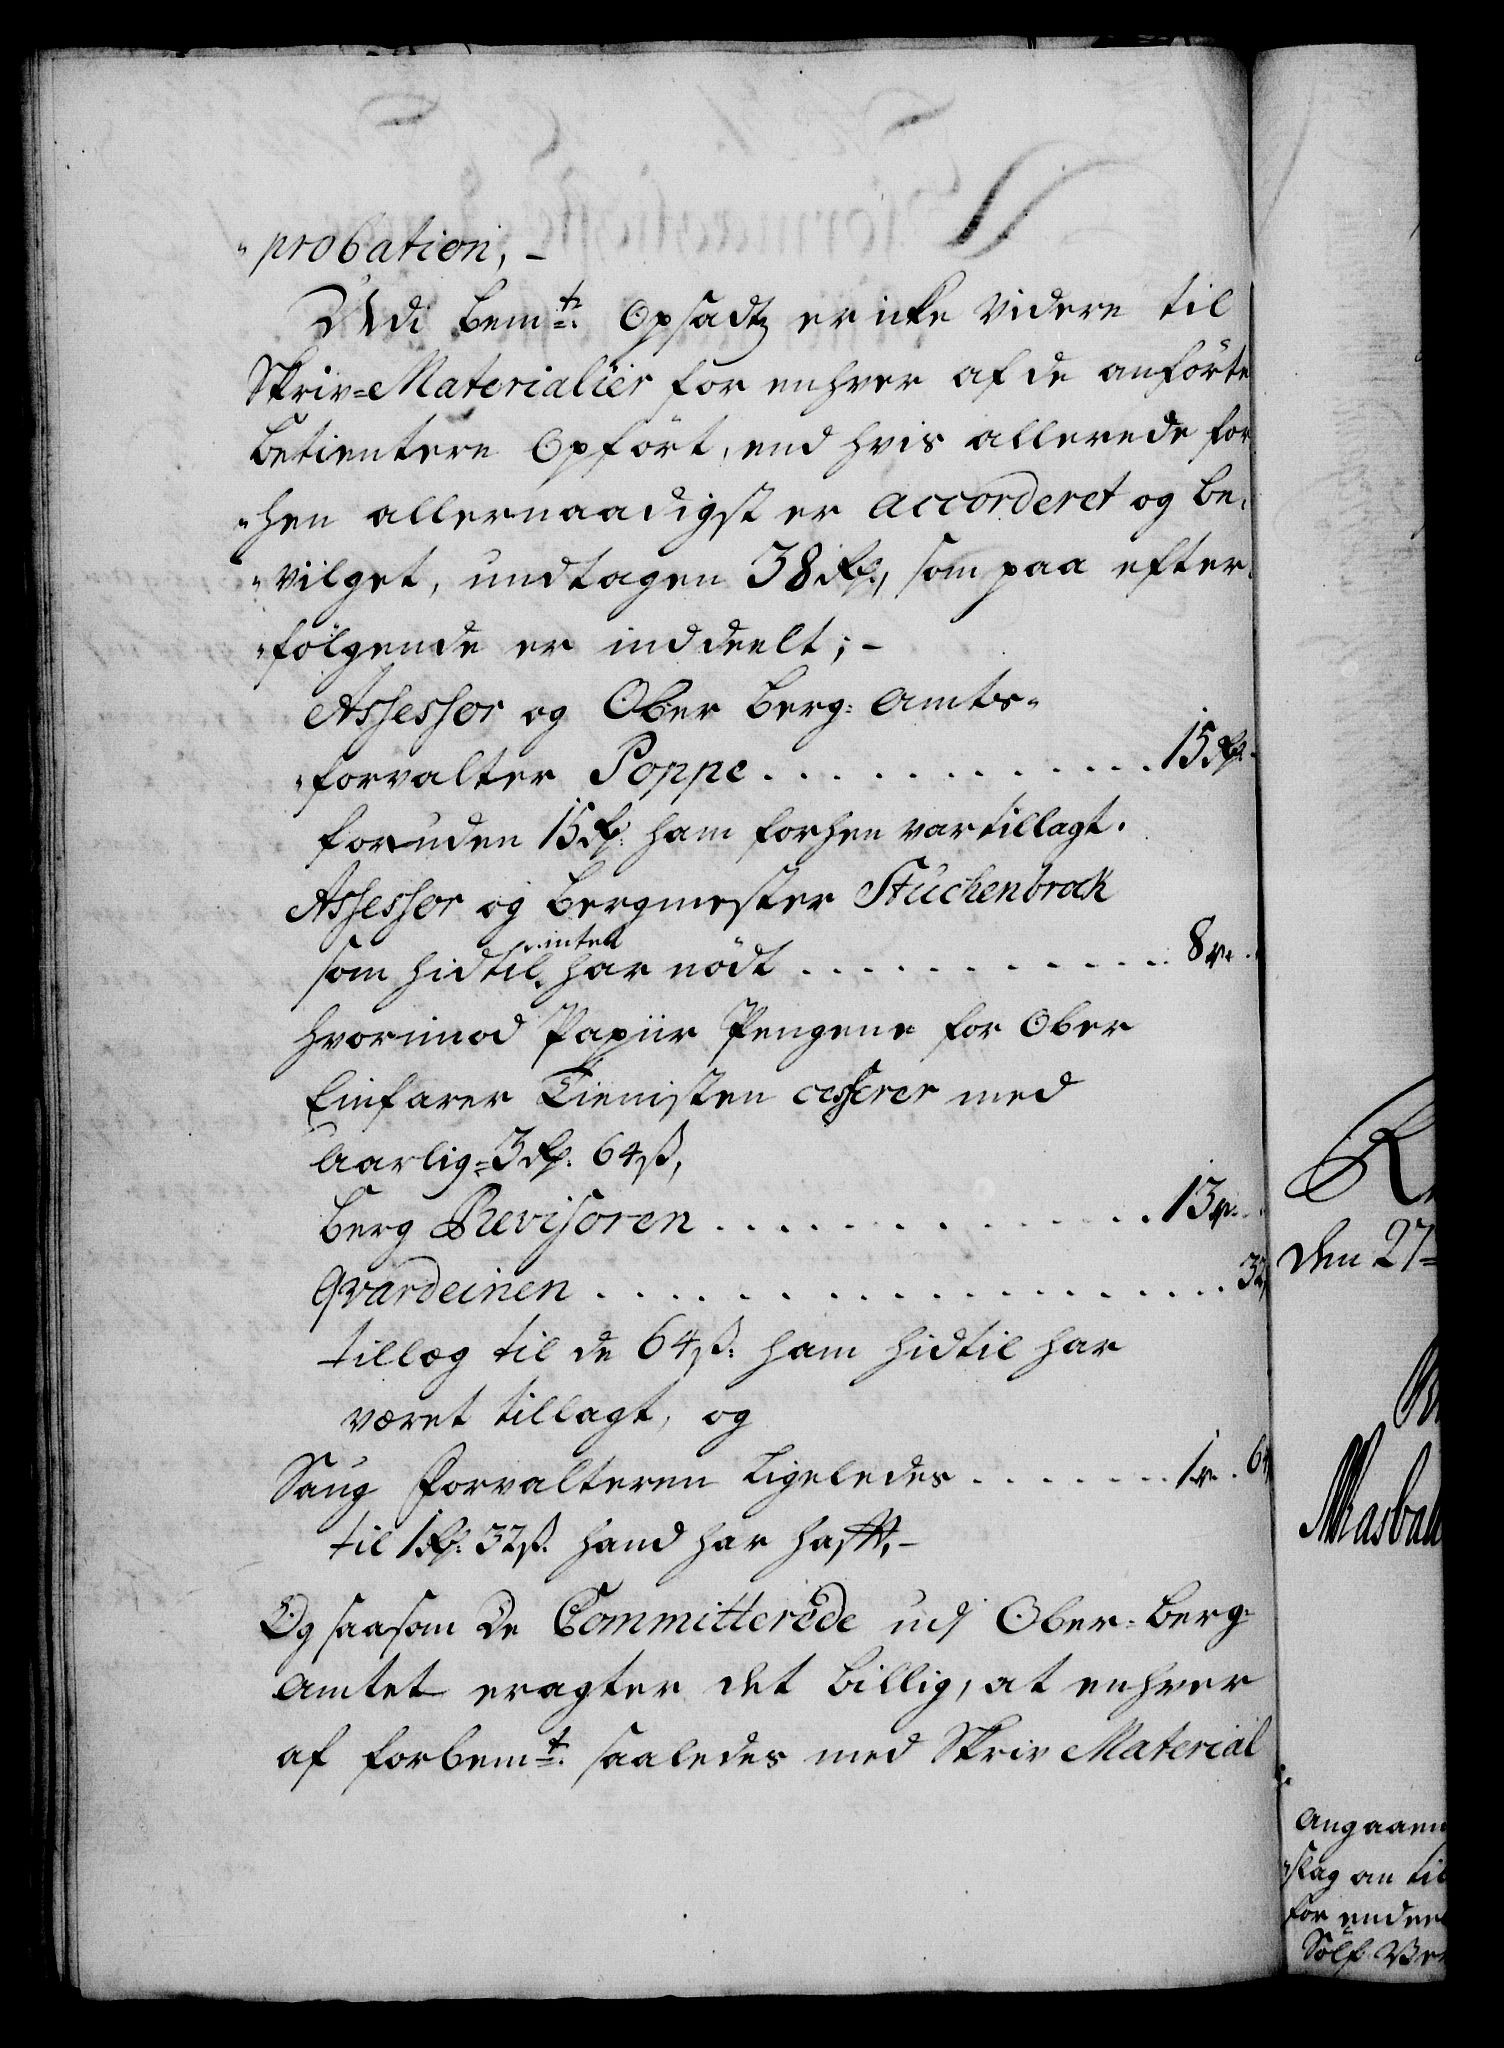 "probation, –
Udi bemte: Opsadtz er icke videre til
Skriv=Materialier for enhver af de anförte
betientere Opfört, end hvis allerede for
"hen allernaadigst er accorderet og be,
"vilget, undtagen 38 rdr., som paa efter,
"fölgende er inddeelt; –
Assessor og Ober berg: Amts"
"forvalter Poppe . . . . . . . . . . . . 15 rdr.
foruden 15 rdr: ham forhen var tillagt.
Assessor og bergmester Stuckenbrock
som hidtil intet har nödt . . . . . . . . . . . 8 r.
hvorimod Papiir Pengene for Ober
Einfarer Tienisten cesserer med
Aarlig= 3 rdr. 64 ß,
berg Revisoren . . . . . . . . . . . . . . 13 r.
Qvardeinen . . . . . . . . . . . . . . . . . . . . 32
tillæg til de 64 ß: ham hidtil har
været tillagt, og
Saug Forvalteren Ligeledes . . . . . . . 1 r. 64
til 1 rdr. 32 ß. hand har hafft, –
Og saasom De Committerede udj Ober=berg=
Amtet eragter det billig, at enhver
af forbemte: saaledes med Skriv Material
den 27=
Angaaen
"slag om til
for
Sölf